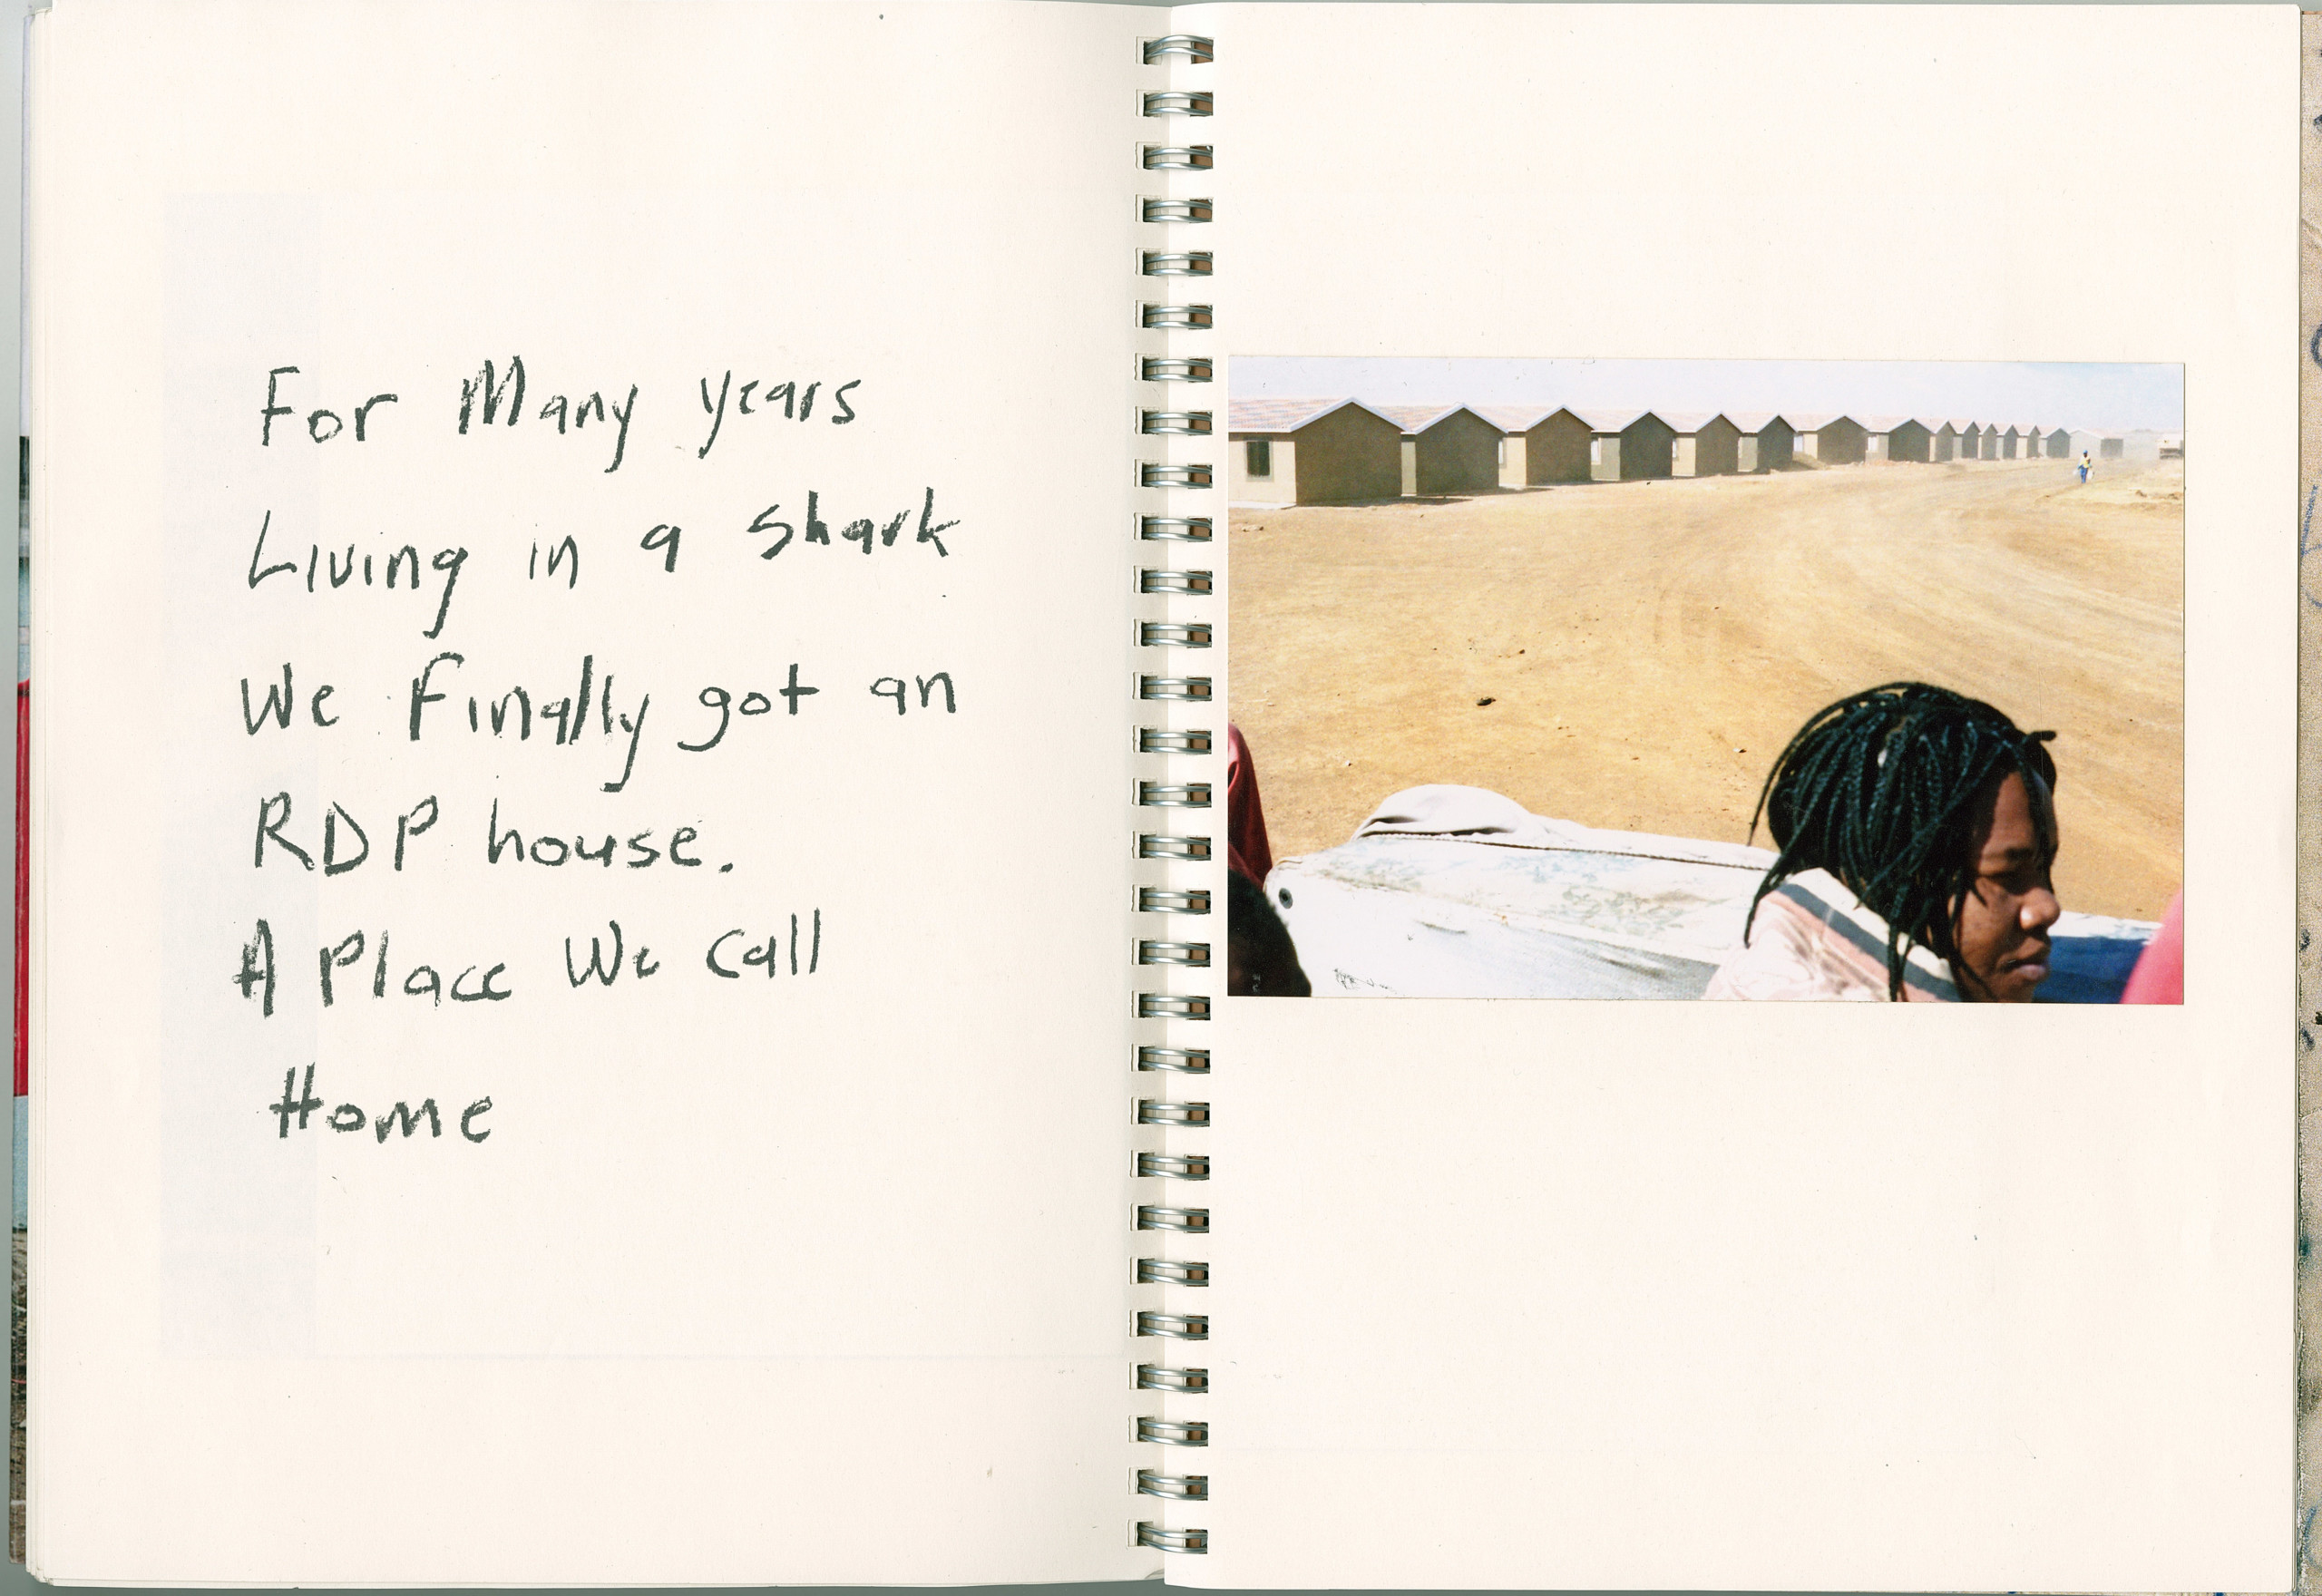 For Many years
Living in a shark
We Finally got an
RDP house.
A Place We call
Home